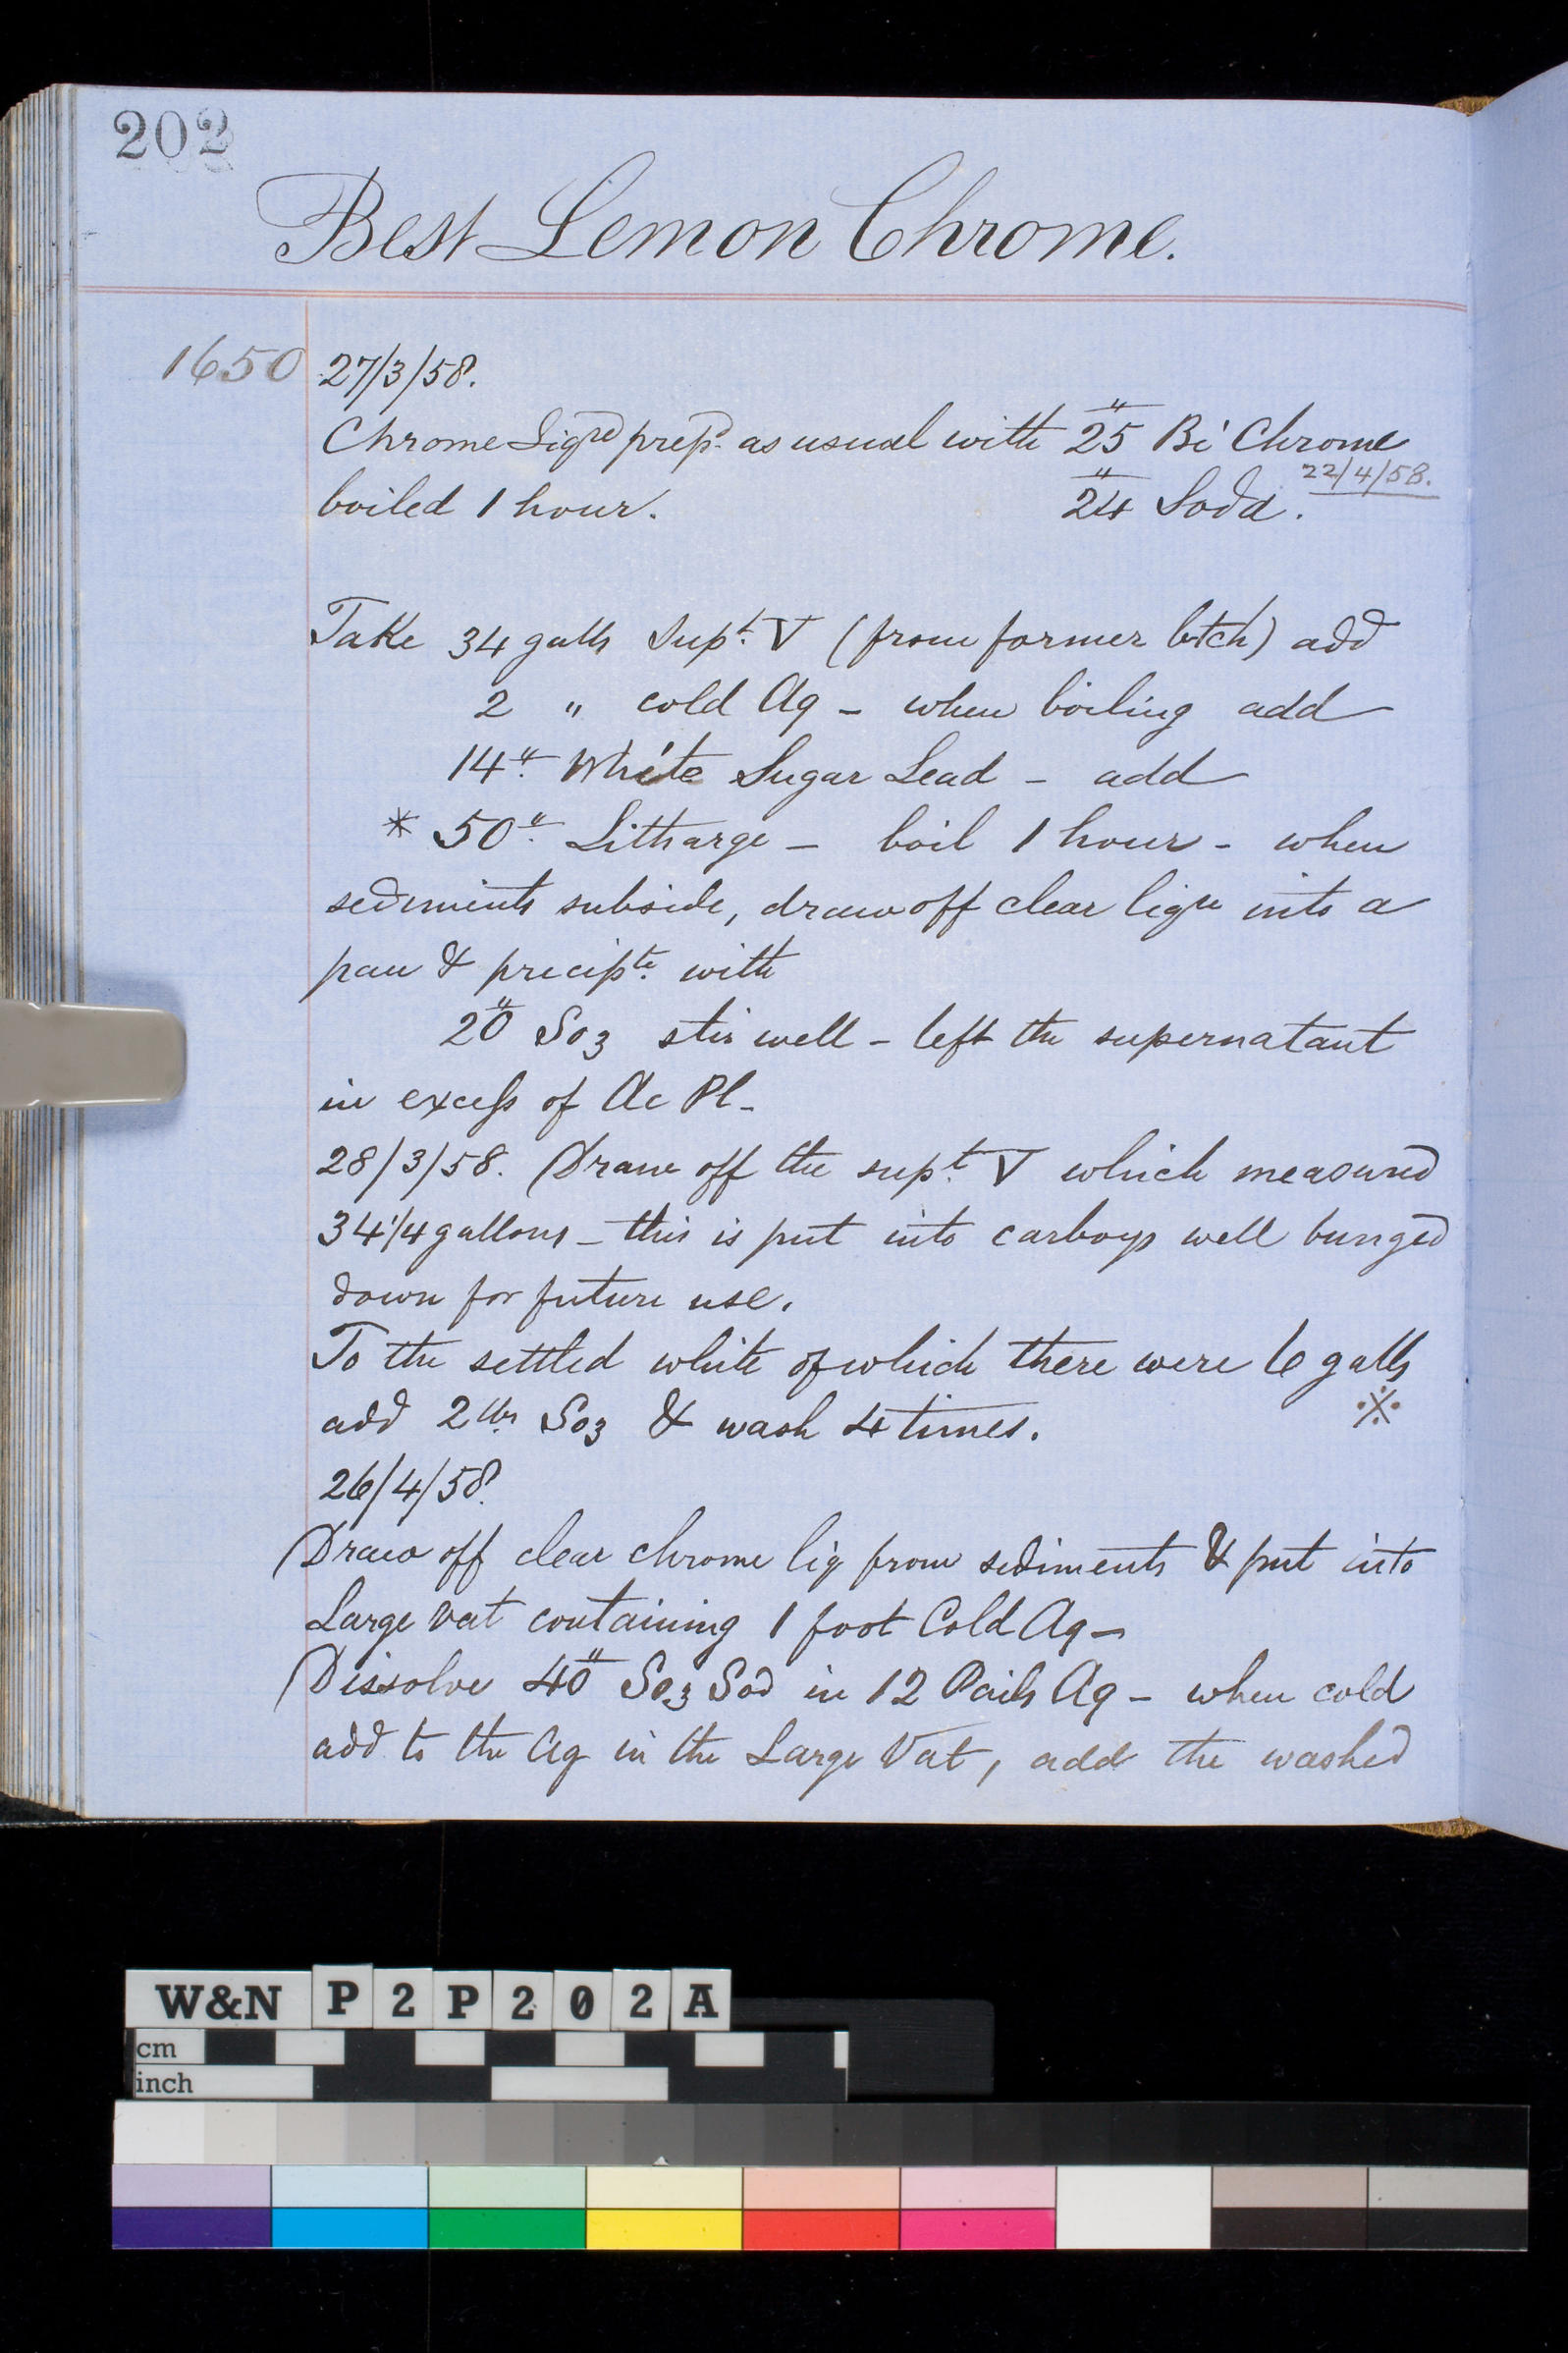 202
Best Lemon Chrome.
1650 27/3/58.
Chrome Liqre prepd as usual with 25" Bi Chrome
22/4/58.
boiled 1 hour. 24" Soda.
Take 34 galls Supt. V (from former btch) add
2 " cold Aq - when boiling add
14" White Sugar Lead - add
* 50" Litharge - boil 1 hour - when
sediments subside, draw off clear liqre into a
pan & precipte. with
20" So3 stir well - left the supernatant
in excess of Ac Pl-
28/3/58. Draw off the supt. V which measured
34 1/4 gallons - this is put into carboys well bunged
down for future use.
To the settled white of which there were 6 galls
add 2 lbs So3 & wash 4 times. ※
26/4/58.
Draw off clear chrome liq from sediments & put into
Large vat containing 1 foot Cold Aq -
Dissolve 40" So3 Sod in 12 Pails Aq - when cold
add to the Aq in the Large Vat, add the washed
W&N P2P202A
cm
inch